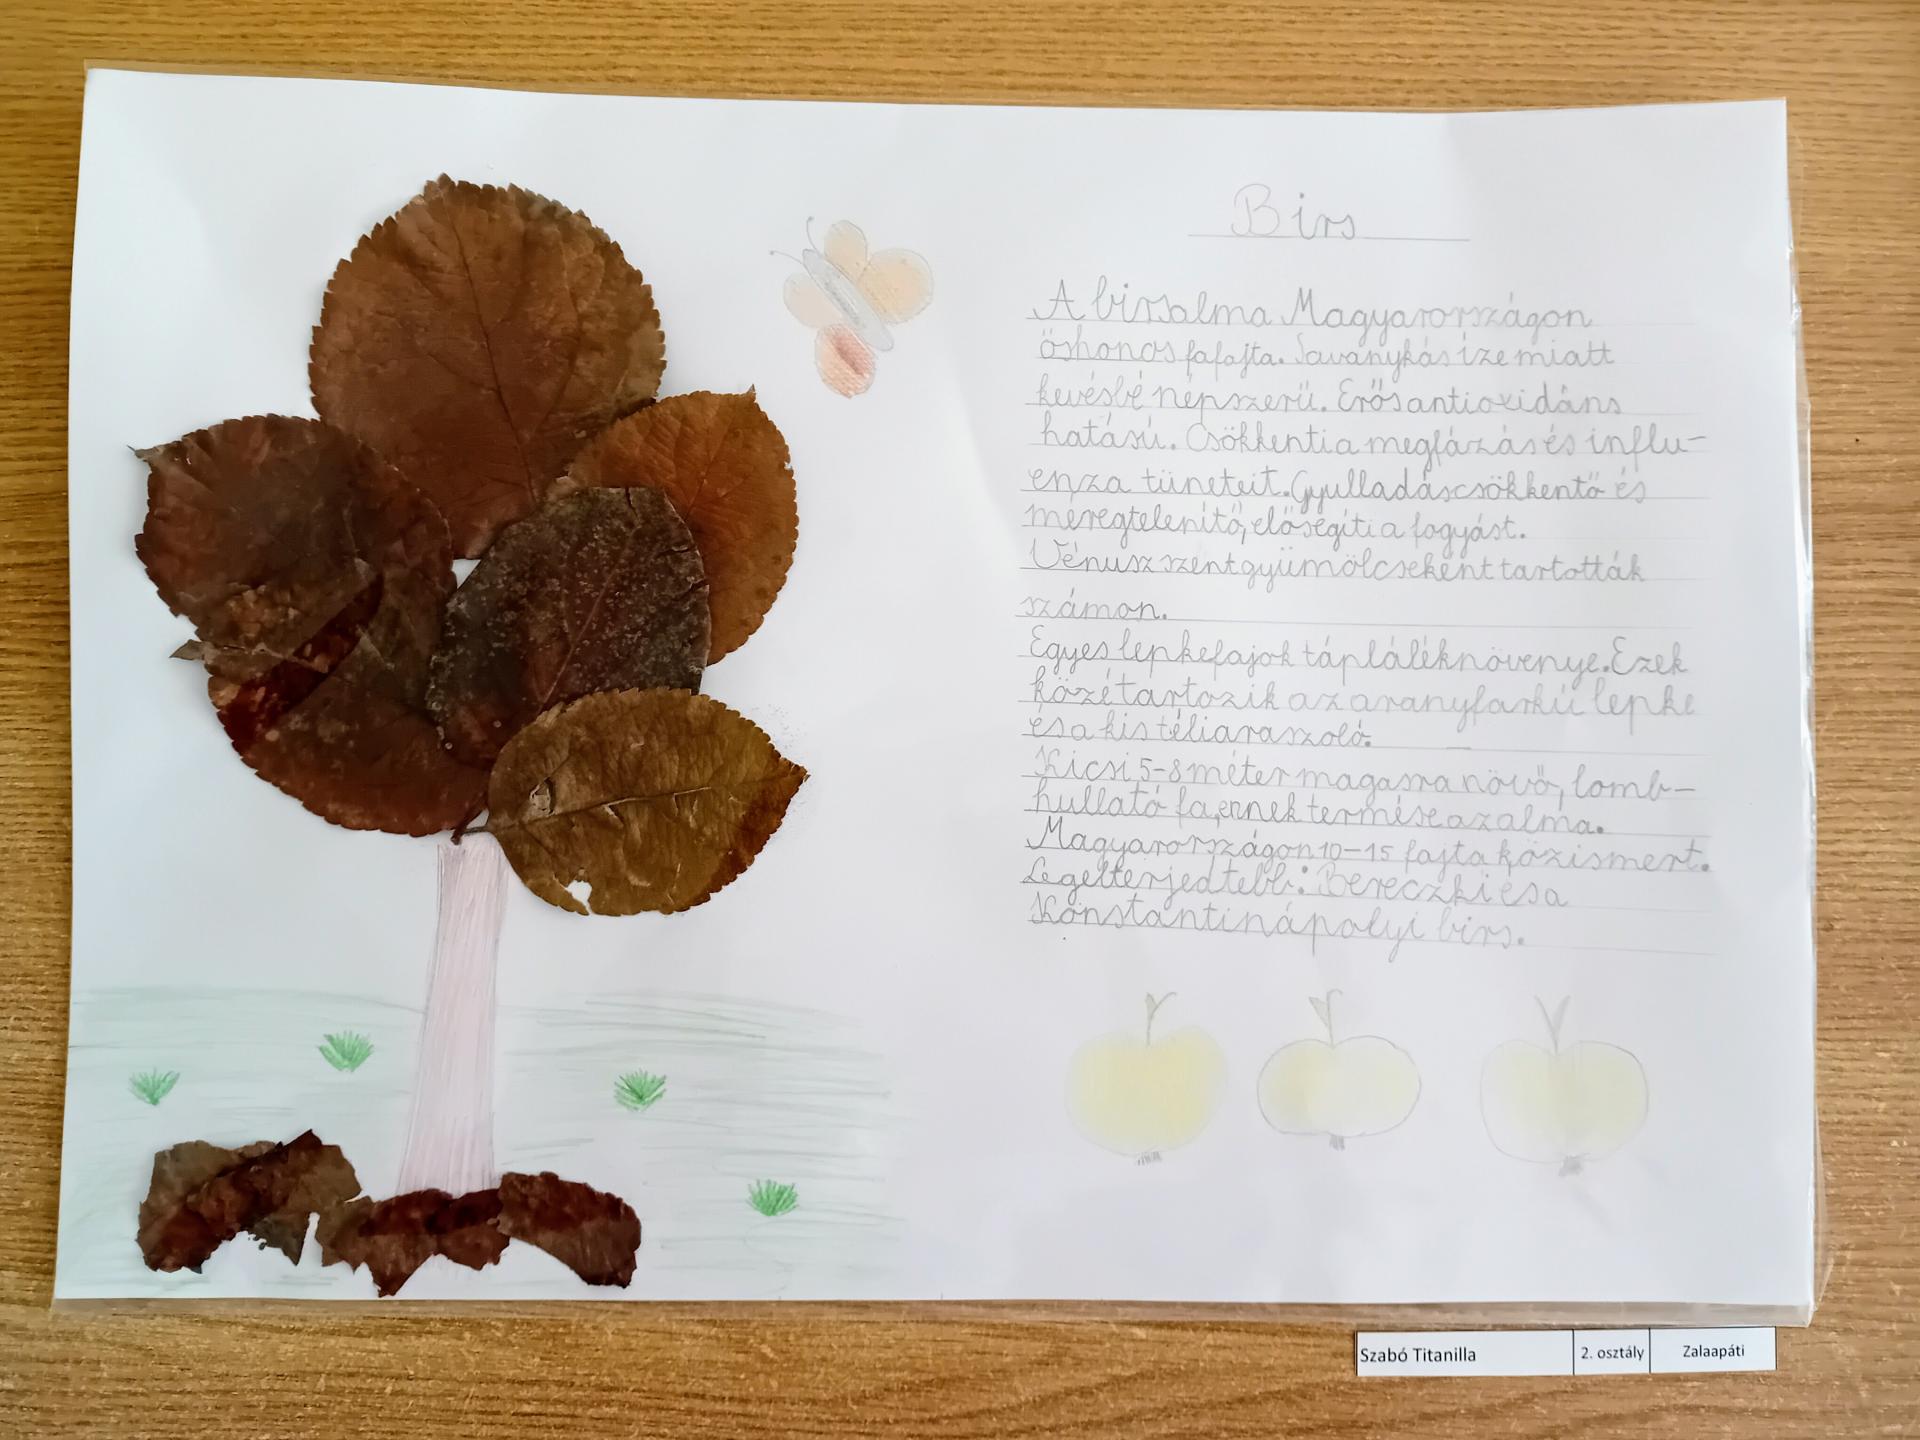 Birs
A birsalma Magyarországon
őshonos fafajta. Savanykás íze miatt
kevésbé népszerű. Erős antioxidáns
hatású. Csökkenti a megfázás és influ-
enza tüneteit. Gyulladáscsökkentő és
méregtelenítő, elősegíti a fogyást.
Vénusz szent gyümölcseként tartották
számon.
Egyes lepkefajok tápláléknövénye. Ezek
közé tartozik az aranyfarkú lepke
és a kis téliaraszoló.
Kicsi 5-8 méter magasra növő, lomb-
hullató fa, ennek termése az alma.
Magyarországon 10-15 fajta közismert.
Legelterjedtebb: Bereczki és a
Konstantinápolyi birs.
Szabó Titanilla 2. osztály Zalaapáti